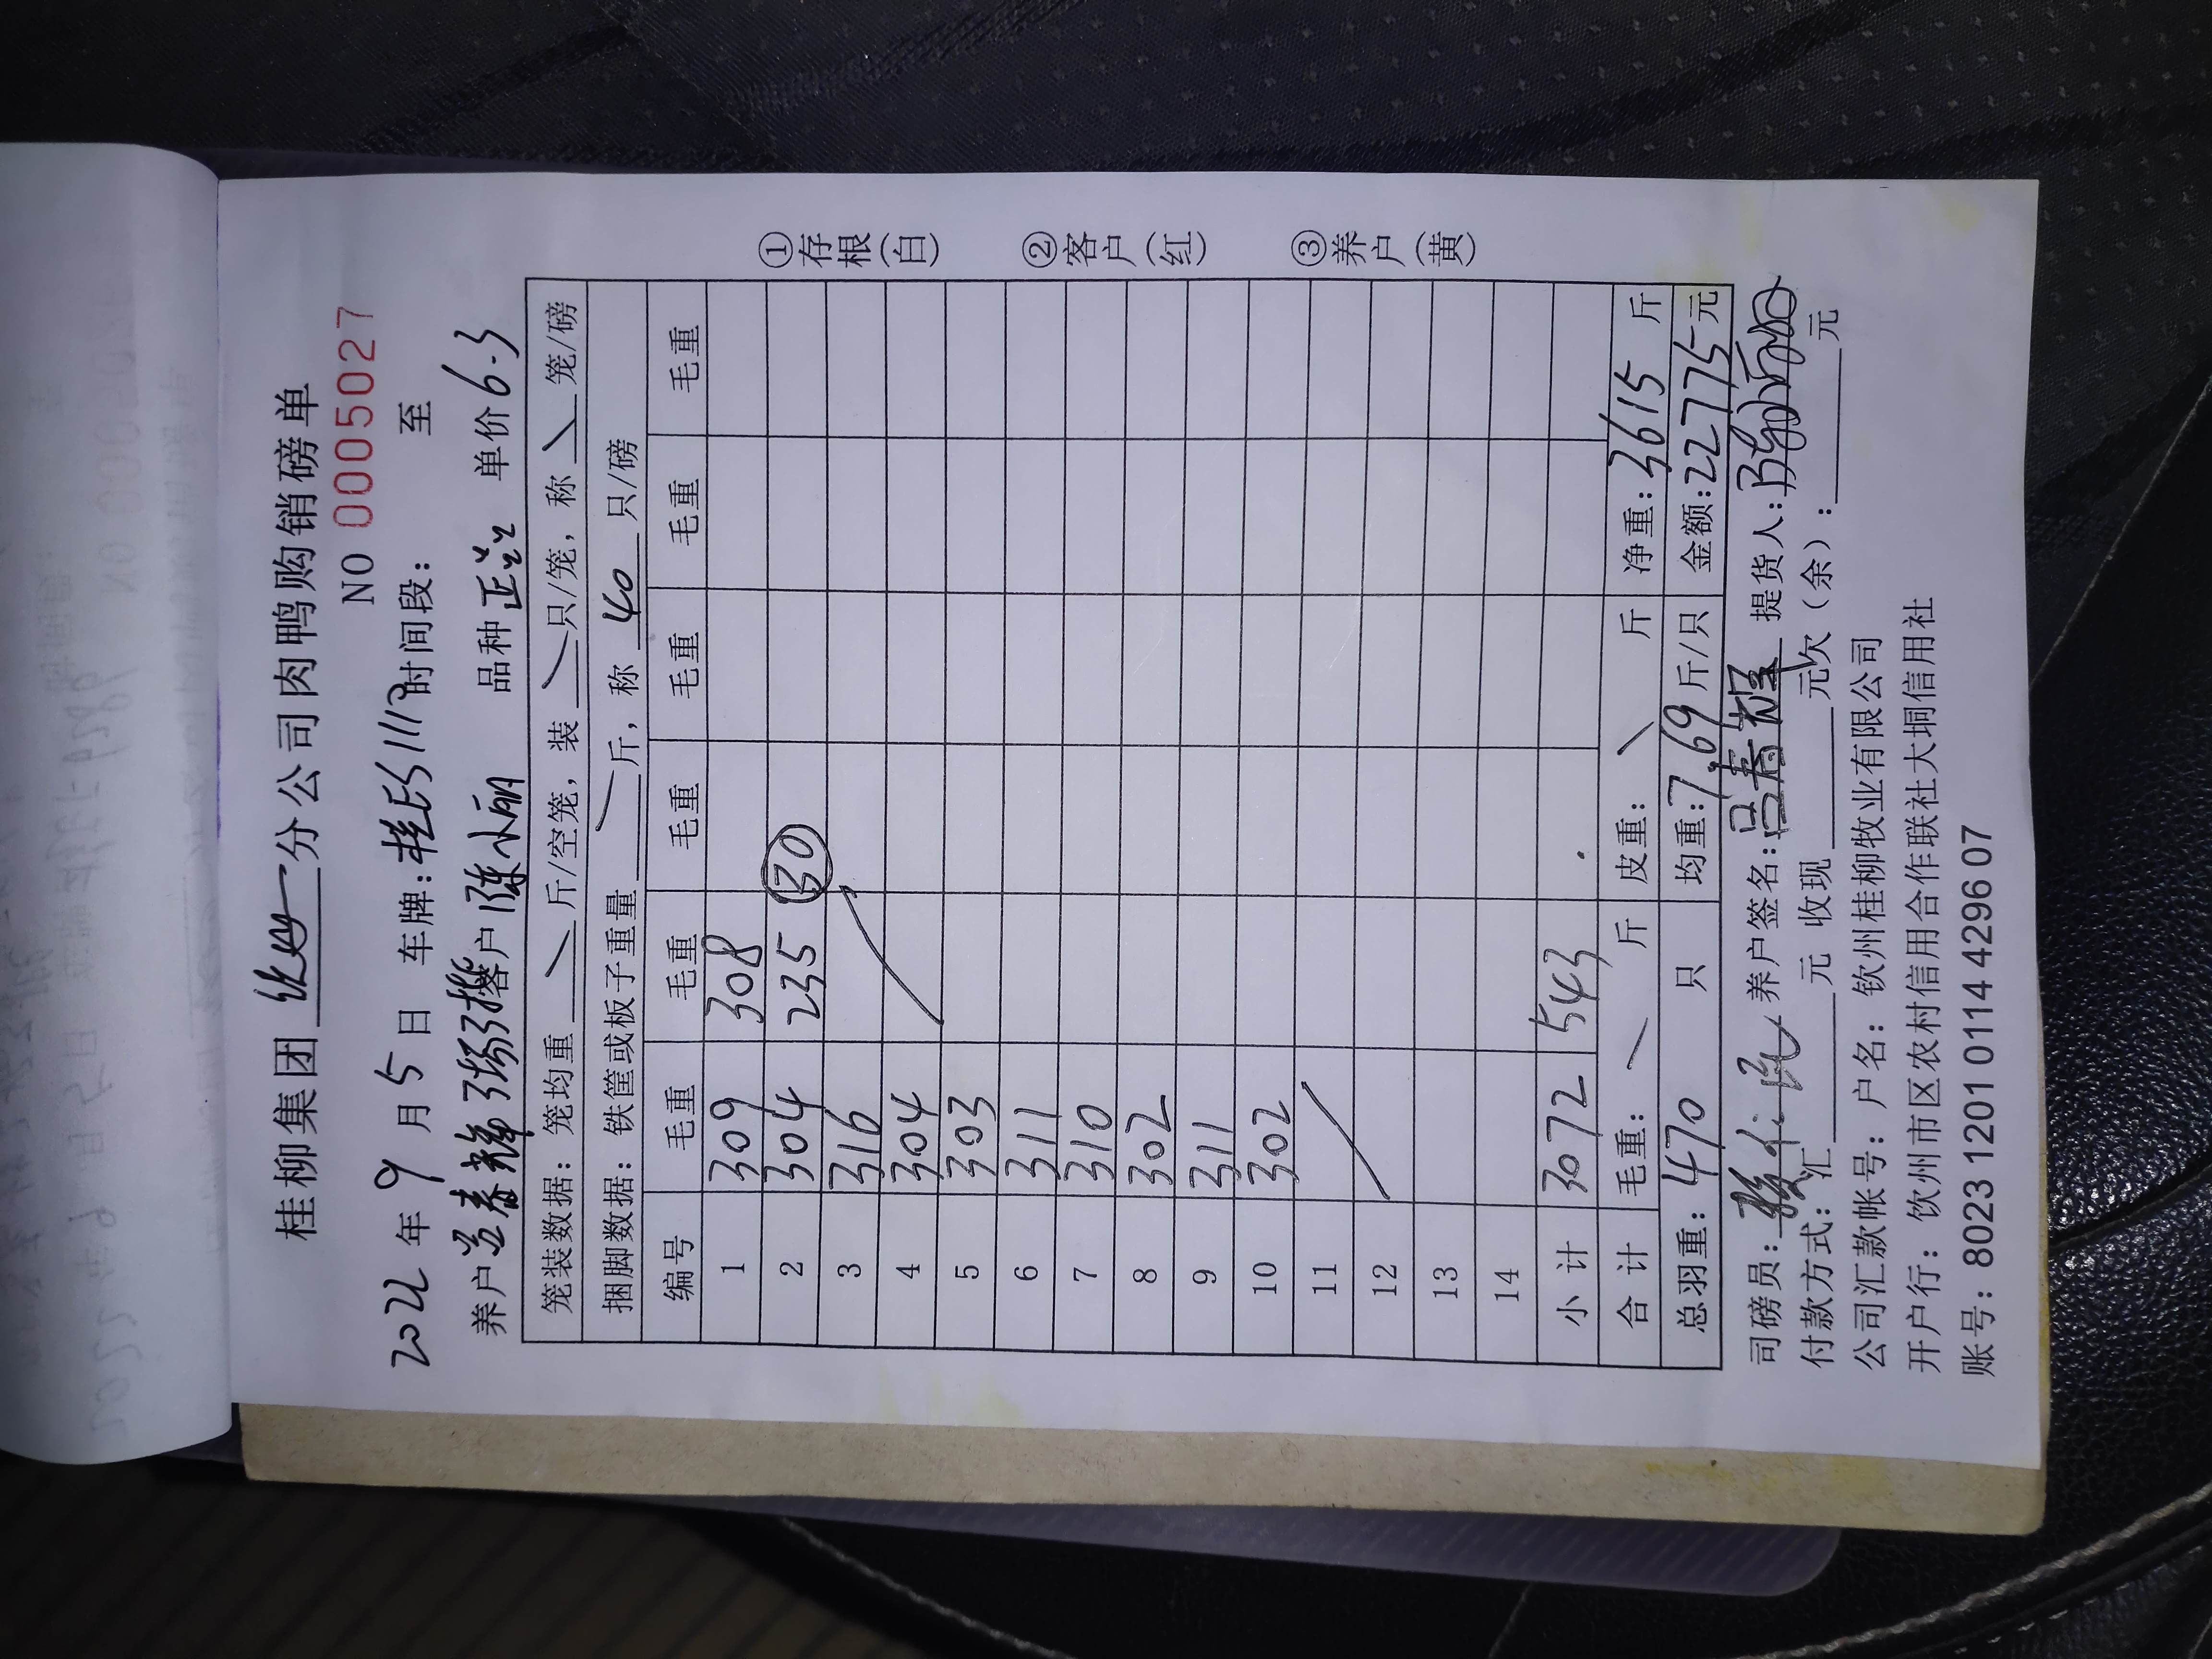 桂柳集团 分公司肉鸭购销磅单
NO 0005027
2022年9月5日 车牌:桂E51112 时间段: 至
养户 春辉3场 客户 陈小丽 品种 正品 单价 6.3
笼装数据: 笼均重 斤/空笼, 装 只/笼, 称 笼/磅
捆脚数据: 铁筐或板子重量 斤, 称 40 只/磅
编号 毛重 毛重 毛重 毛重 毛重 毛重
1 309 308
2 304 235 30
3 316
4 304
5 303
6 311
7 310
8 302
9 311
10 302
11
12
13
14
小计 3072 543
合计 毛重: 斤 皮重: 斤 净重: 3615 斤
总羽重: 470 只 均重: 7.69 斤/只 金额: 22775元
司磅员: 养户签名: 提货人:
付款方式: 汇 元 收现 元欠(余): 元
公司汇款帐号: 户名: 钦州桂柳牧业有限公司
开户行: 饮州市区农村信用合作联社大垌信用社
账号: 8023 1201 0114 4296 07
①存根(白)
②客户(红)
③养户(黄)